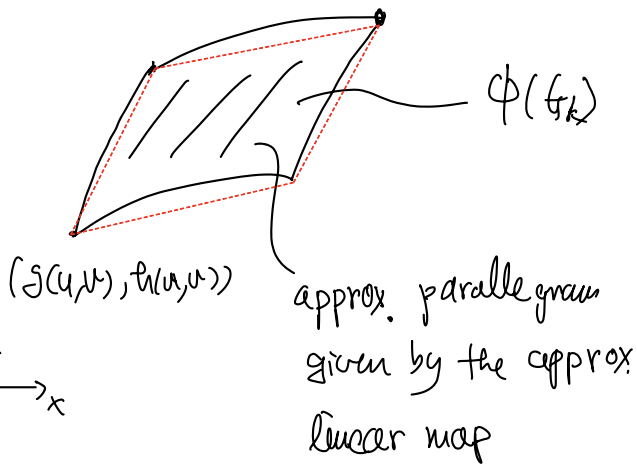 ϕ(G_k)
(g(u,v), h(u,v))
approx. parallegram
given by the approx.
linear map
x